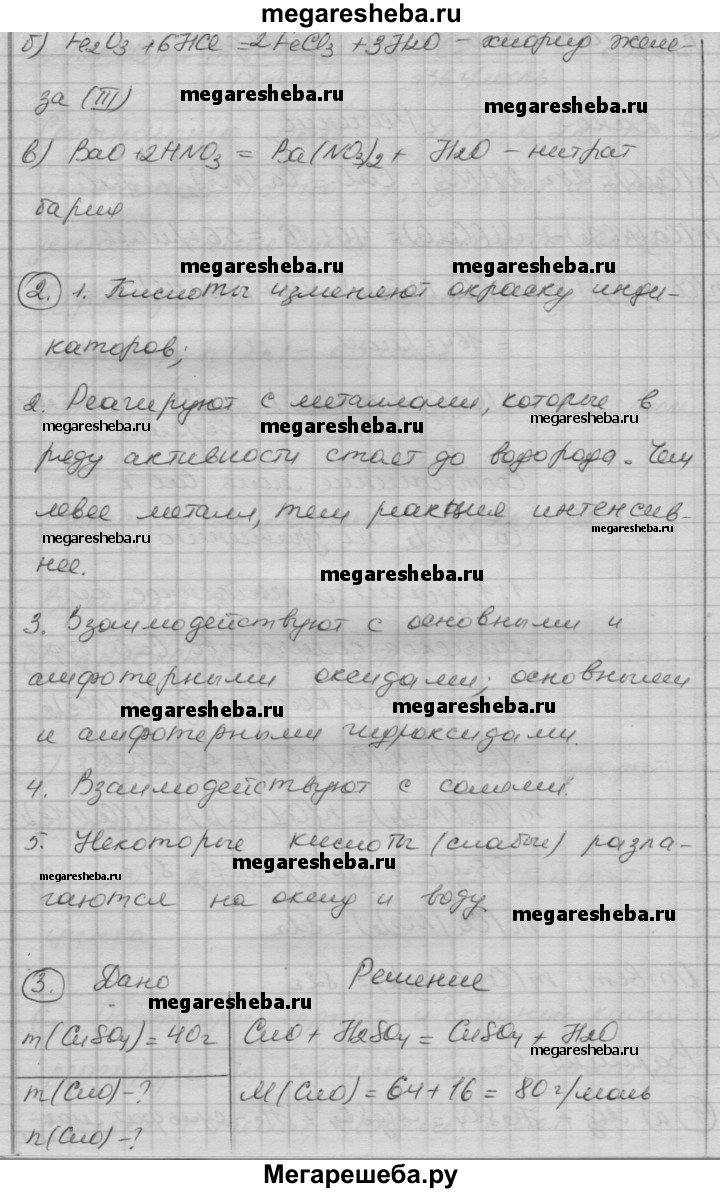 megaresheba.ru
б) Fe2O3 + 6HCl = 2FeCl3 + 3H2O – хлорид желе-
за (III)
megaresheba.ru megaresheba.ru
в) BaO + 2HNO3 = Ba(NO3)2 + H2O – нитрат
бария
megaresheba.ru megaresheba.ru
2. 1. Кислоты изменяют окраску инди-
каторов;
2. Реагируют с металлами, которые в
megaresheba.ru megaresheba.ru megaresheba.ru
ряду активности стоят до водорода. Чем
левее металл, тем реакция интенсив-
megaresheba.ru megaresheba.ru
нее.
megaresheba.ru
3. Взаимодействуют с основными и
амфотерными оксидами; основными
megaresheba.ru megaresheba.ru
и амфотерными гидроксидами.
4. Взаимодействуют с солями.
5. Некоторые кислоты (слабые) разла-
megaresheba.ru
megaresheba.ru
гаются на оксид и воду
megaresheba.ru
3. Дано Решение
megaresheba.ru
m(CuSO4) = 40г CuO + H2SO4 = CuSO4 + H2O
megaresheba.ru
m(CuO) – ? M(CuO) = 64 + 16 = 80 г/моль
n(CuO) – ?
Мегарешеба.ру